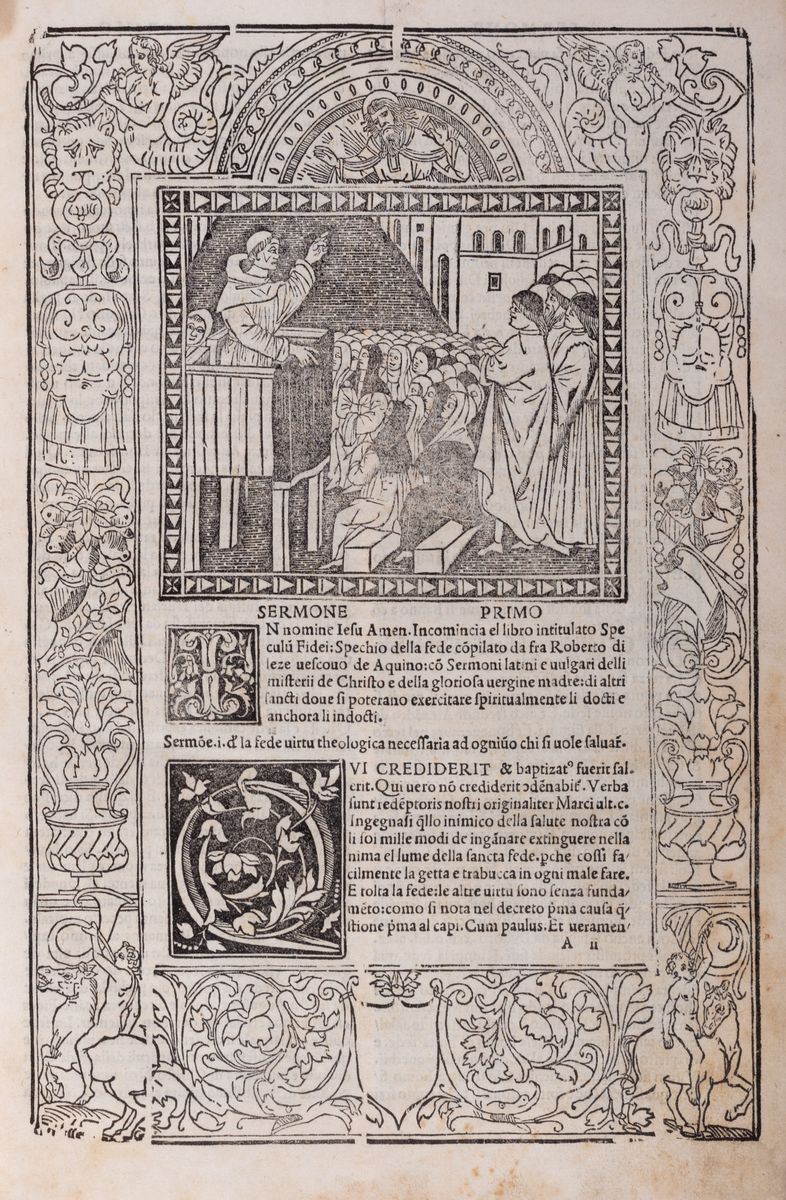 SERMONE PRIMO
IN nomine Iesu Amen. Incomincia el libro intitulato Spe
culū Fidei: Spechio della fede cōpilato da fra Roberto di
leze uescouo de Aquino: cō Sermoni latini e uulgari delli
misterii de Christo e della gloriosa uergine madre: di altri
sancti doue si poterano exercitare spiritualmente li docti e
anchora li indocti.
Sermōe. i. d' la fede uirtu theologica necessaria ad ogniūo chi si uole saluar̄.
QVI CREDIDERIT & baptizatꝰ fuerit sal⸗
erit. Qui uero nō crediderit ↄdēnabit̄. Verba
sunt redēptoris nostri originaliter Marci ult. c.
Ingegnasi q̄llo inimico della salute nostra cō
li soi mille modi de ingānare extinguere nella
nima el lume della sancta fede. pche cossi fa/
cilmente la getta e trabucca in ogni male fare.
E tolta la fede: le altre uirtu sono senza funda/
mēto: como si nota nel decreto p̄ma causa q̄/
stione p̄ma al capi. Cum paulus. Et ueramen/
A ii